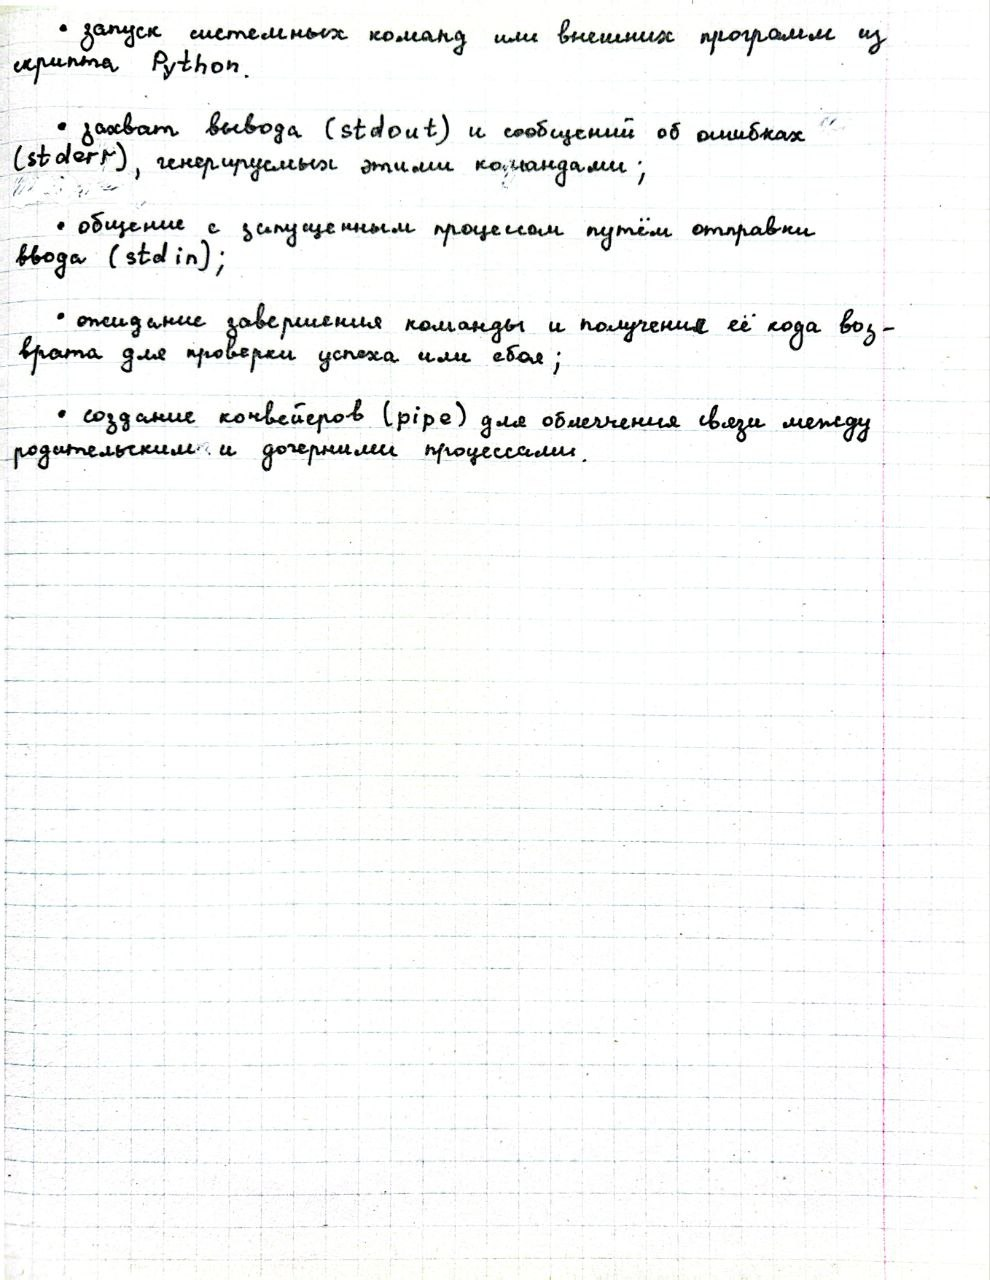 • запуск системных команд или внешних программ из
скрипта Python.
• захват вывода (stdout) и сообщений об ошибках
(stderr), генерируемых этими командами;
• общение с запущенным процессом путём отправки
ввода (stdin);
• ожидание завершения команды и получение её кода воз-
врата для проверки успеха или сбоя;
• создание конвейеров (pipe) для облегчения связи между
родительским и дочерними процессами.